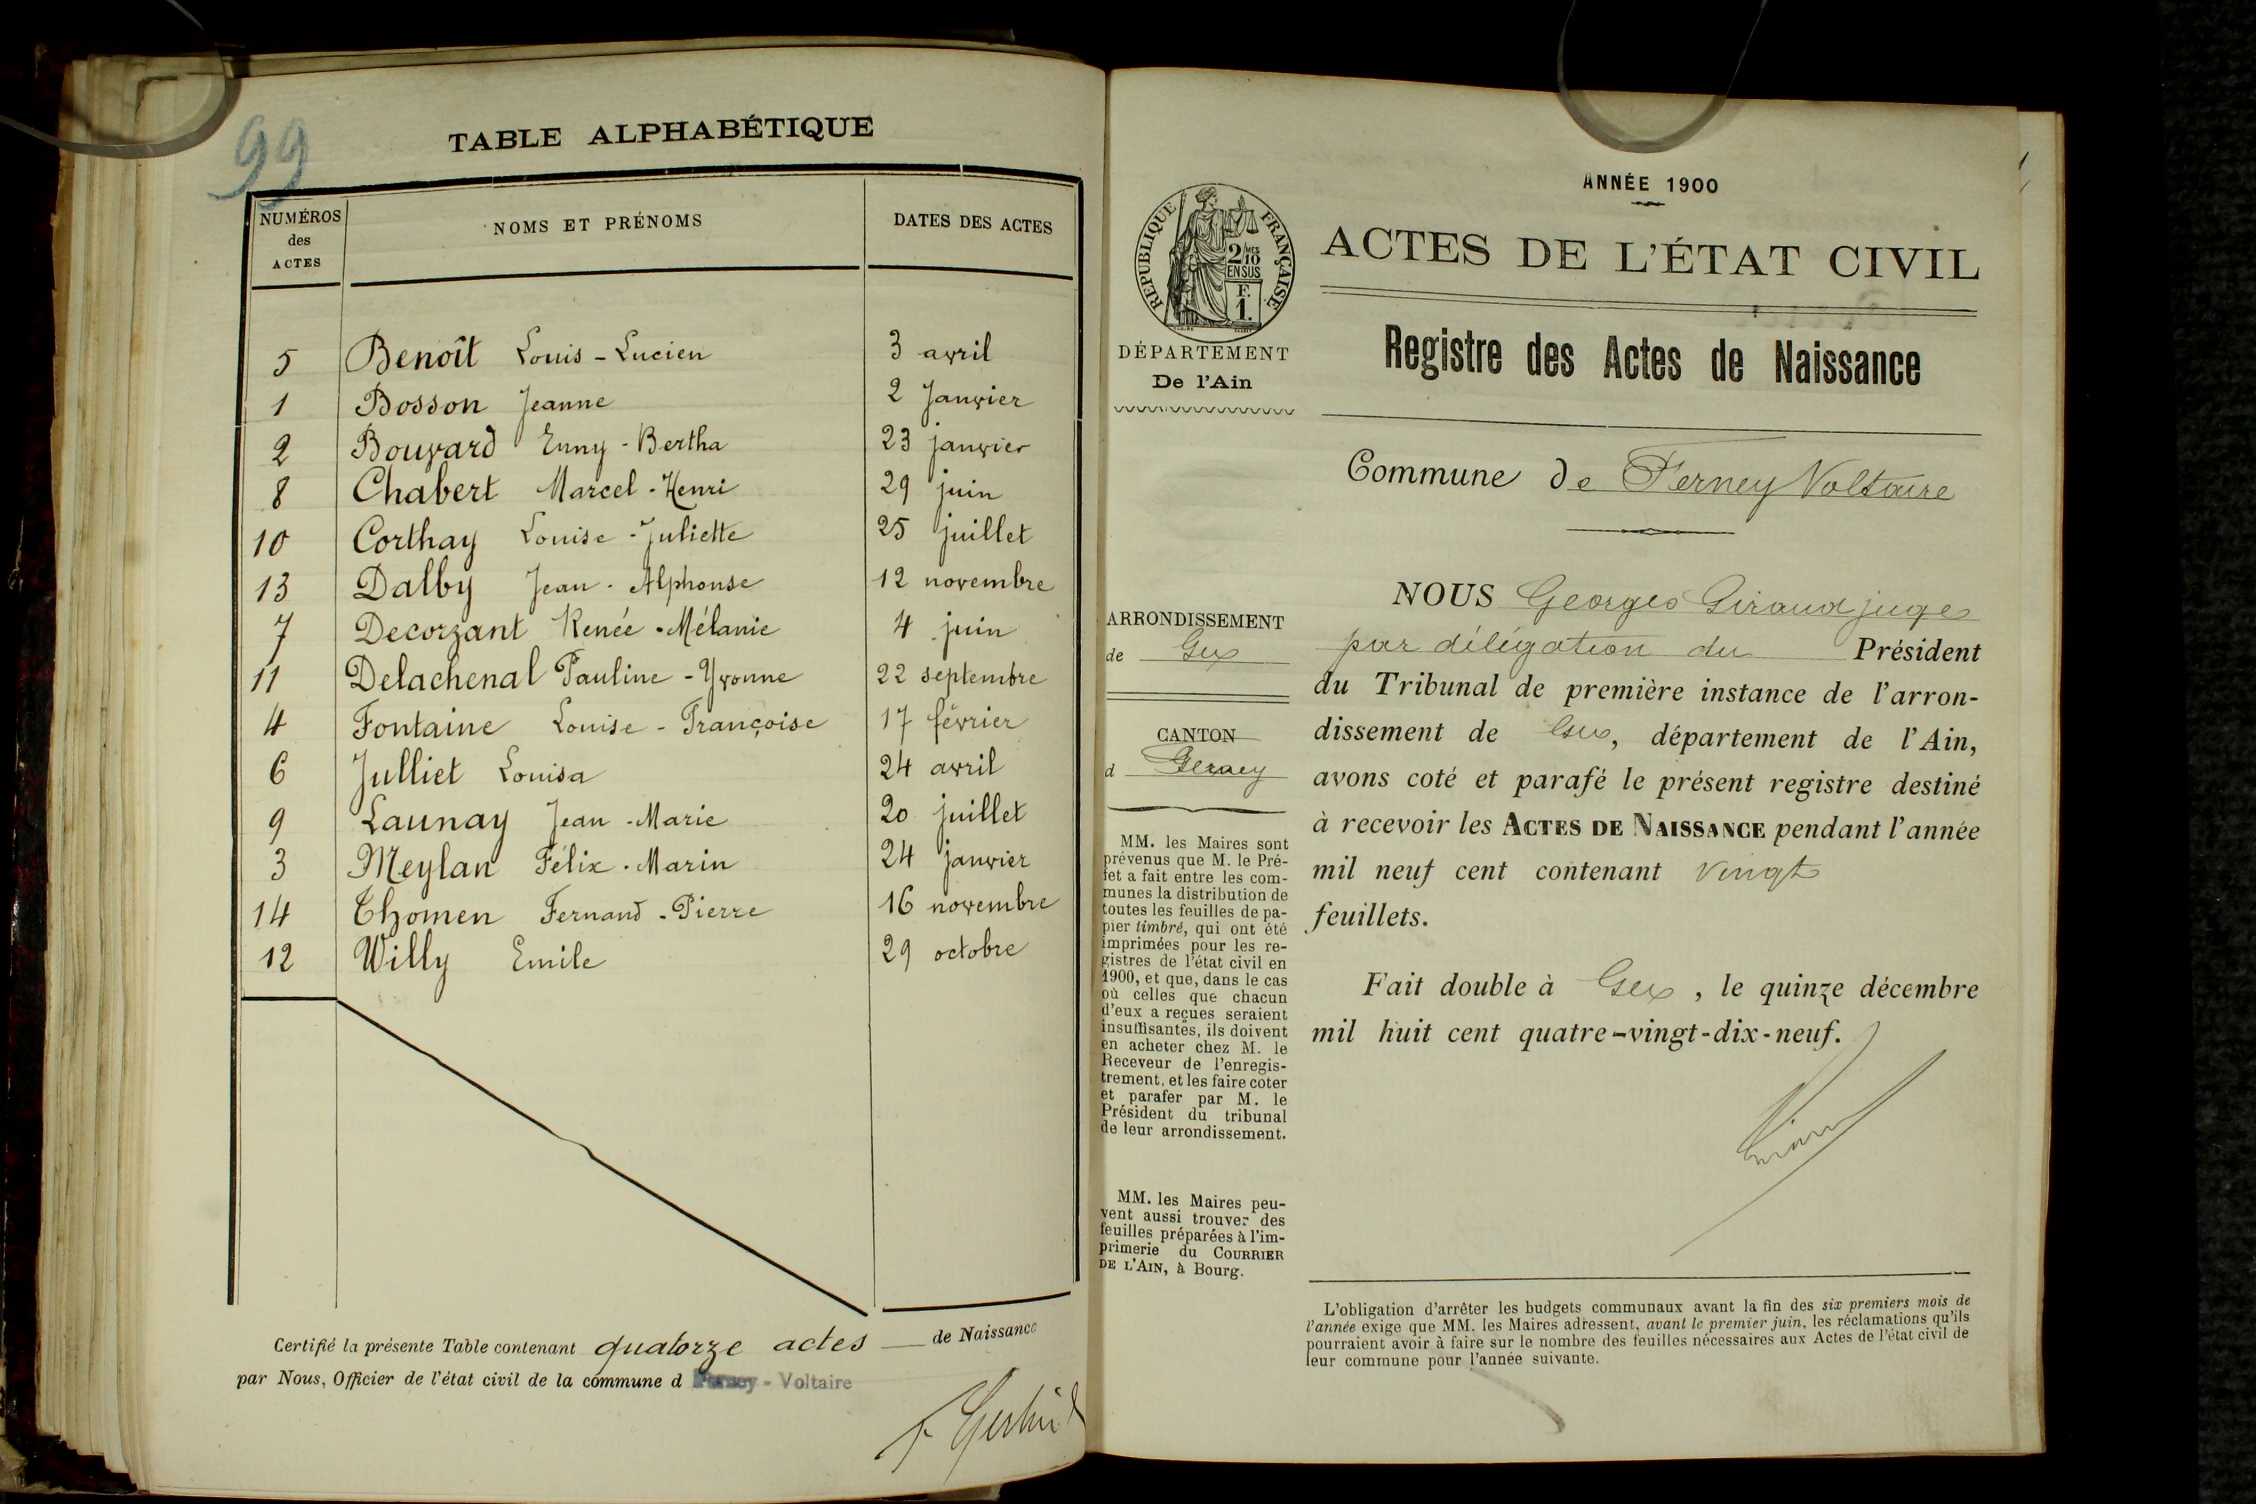 99
TABLE ALPHABÉTIQUE
NUMÉROS
des
ACTES
NOMS ET PRÉNOMS
DATES DES ACTES
5 Benoît Louis - Lucien 3 avril
1 Bosson Jeanne 2 Janvier
2 Bouvard Enny - Bertha 23 janvier
8 Chabert Marcel - Henri 29 juin
10 Corthay Louise - Juliette 25 juillet
13 Dalby Jean - Alphonse 12 novembre
7 Decorzant Renée - Mélanie 4 juin
11 Delachenal Pauline - Yvonne 22 septembre
4 Fontaine Louise - Françoise 17 février
6 Julliet Louisa 24 avril
9 Launay Jean - Marie 20 juillet
3 Meylan Félix - Marin 24 janvier
14 Thomen Fernand - Pierre 16 novembre
12 Willy Emile 29 octobre
Certifié la présente Table contenant quatorze actes de Naissance
par Nous, Officier de l'état civil de la commune d Ferney - Voltaire
ANNÉE 1900
RÉPUBLIQUE FRANÇAISE
2/10 MES
EN SUS
F.
1.
ACTES DE L'ÉTAT CIVIL
Registre des Actes de Naissance
DÉPARTEMENT
De l'Ain
Commune de Ferney Voltaire
ARRONDISSEMENT
de Gex
CANTON
d Ferney
MM. les Maires sont
prévenus que M. le Pré-
fet a fait entre les com-
munes la distribution de
toutes les feuilles de pa-
pier timbré, qui ont été
imprimées pour les re-
gistres de l'état civil en
1900, et que, dans le cas
où celles que chacun
d'eux a reçues seraient
insuffisantes, ils doivent
en acheter chez M. le
Receveur de l'enregis-
trement, et les faire coter
et parafer par M. le
Président du tribunal
de leur arrondissement.
MM. les Maires peu-
vent aussi trouver des
feuilles préparées à l'im-
primerie du COURRIER
DE L'AIN, à Bourg.
NOUS Georges Giraud juge
par délégation du Président
du Tribunal de première instance de l'arron-
dissement de Gex, département de l'Ain,
avons coté et parafé le présent registre destiné
à recevoir les ACTES DE NAISSANCE pendant l'année
mil neuf cent contenant vingt
feuillets.
Fait double à Gex, le quinze décembre
mil huit cent quatre-vingt-dix-neuf.
L'obligation d'arrêter les budgets communaux avant la fin des six premiers mois de
l'année exige que MM. les Maires adressent, avant le premier juin, les réclamations qu'ils
pourraient avoir à faire sur le nombre des feuilles nécessaires aux Actes de l'état civil de
leur commune pour l'année suivante.